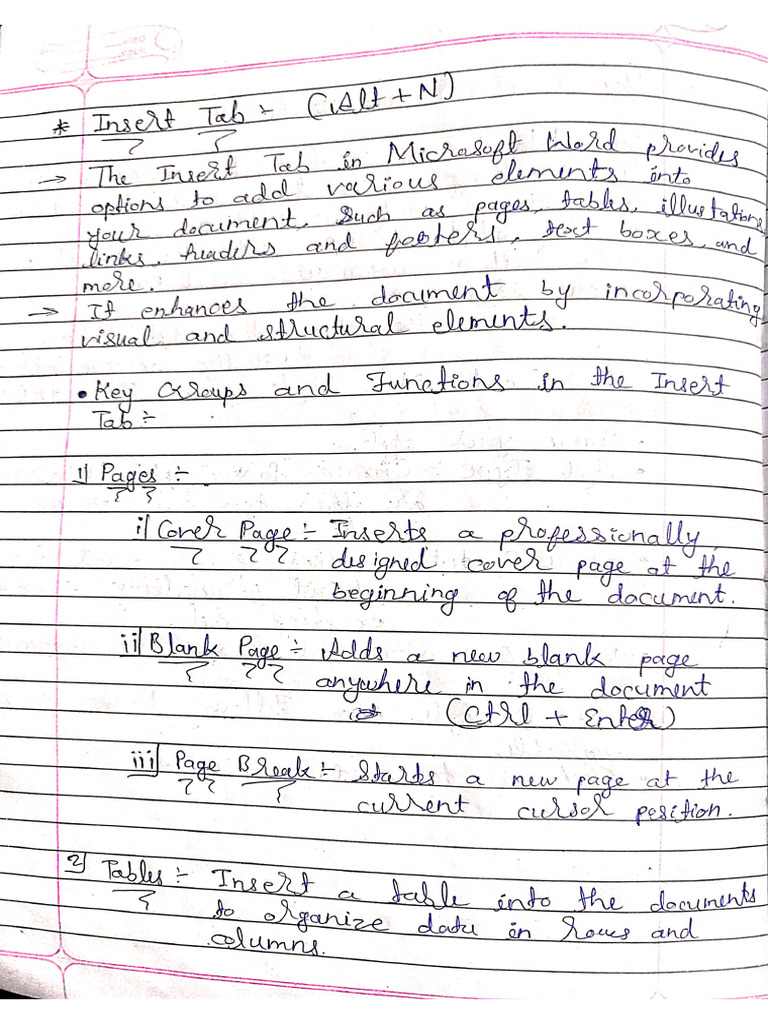 * Insert Tab :- (Alt + N)
→ The Insert Tab in Microsoft Word provides
options to add various elements into
your document, such as pages, tables, illustations,
links, headers and footers, text boxes, and
more.
→ It enhances the document by incorporating
visual and structural elements.
• Key Groups and Functions in the Insert
Tab :-
1) Pages :-
i) Cover Page :- Inserts a professionally
designed cover page at the
beginning of the document.
ii) Blank Page :- Adds a new blank page
anywhere in the document
(Ctrl + Enter)
iii) Page Break :- Starts a new page at the
current cursor position.
2) Tables :- Insert a table into the documents
to organize data in rows and
columns.